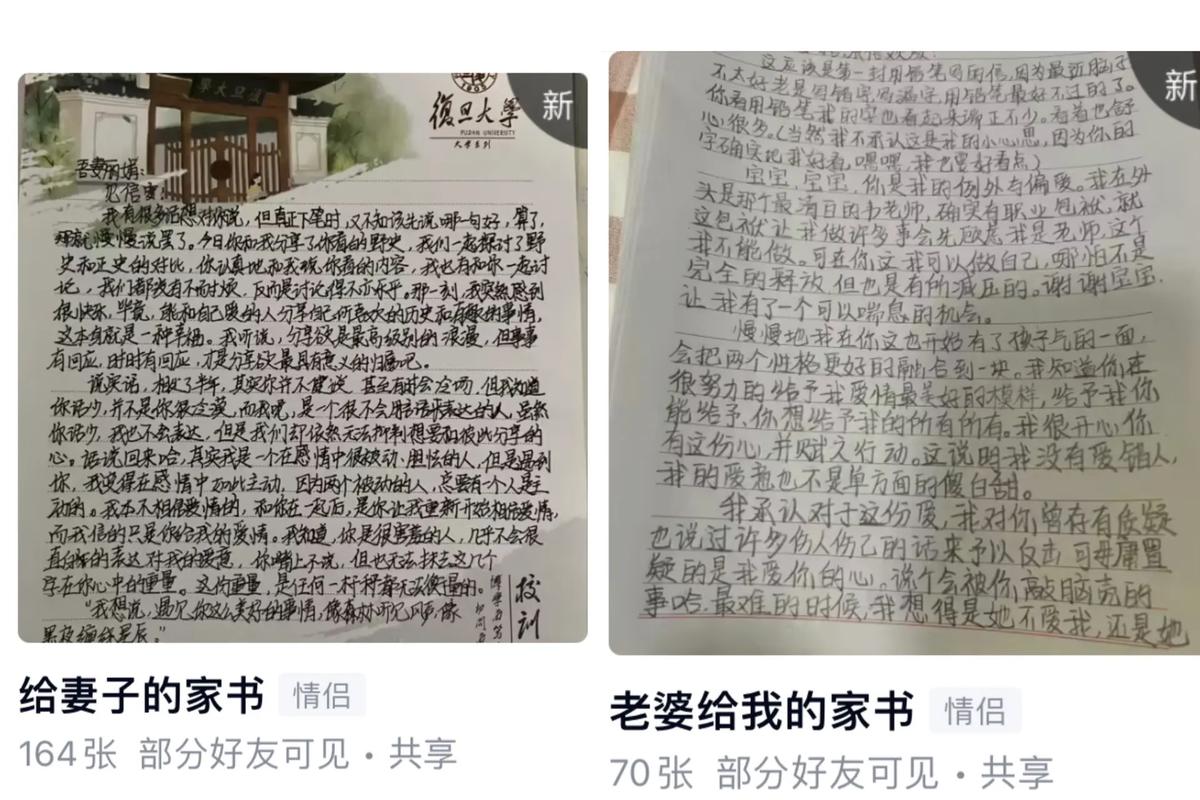 新
復旦大學
FUDAN UNIVERSITY
大学系列
吾妻丽娟：
见信安。
我有很多话想对你说，但真正下笔时，又不知该先说哪一句好，算了，
那就慢慢说罢了。今日你和我分享了你看的野史，我们一起探讨了野
史和正史的对比，你认真地和我说你看的内容，我也有和你一起讨
论，我们都没有不耐烦，反而是讨论得不亦乐乎。那一刻，我突然感到
很快乐，毕竟，能和自己爱的人分享自己所喜欢的历史和有趣的事情，
这本身就是一种幸福。我听说，分享欲是最高级别的浪漫，但事事
有回应，时时有回应，才是分享欲最具有意义的归宿吧。
说实话，相处了半年，其实你并不健谈，甚至有时会冷场，但我知道
你话少，并不是你很冷漠，而我呢，是一个很不会用话语表达的人，虽然
你话少，我也不会表达，但是我们却依然无法抑制想要和彼此分享的
心。话说回来哈，其实我是一个在感情中很被动、胆怯的人，但是遇到
你，我变得在感情中如此主动，因为两个被动的人，总要有一个人是主
动的。我本不相信爱情的，和你在一起后，是你让我重新开始相信爱情，
而我信的只是你给我的爱情。我知道，你是很害羞的人，几乎不会很
直白的表达对我的爱意，你嘴上不说，但也无法抹去这几个
字在你心中的重量。这份重量，是任何一杆秤都无法衡量的。
“我想说，遇见你这么美好的事情，像森林听见风声，像
黑夜缠绵星辰。”
校训
给妻子的家书 情侣
164张 部分好友可见·共享
新
这应该是第一封用铅笔写的信，因为最近脑子
不太好老是写错字写漏字，用铅笔最好不过的了。
你看用铅笔我的字也看起来端正不少。看着也舒
心很多。（当然我不承认这是我的小心思，因为你的
字确实比我好看，嘿嘿，我也要好看点）
宝宝，宝宝，你是我的例外与偏爱。我在外
头是那个最清白的书老师，确实有职业包袱，就
这包袱让我做许多事会先顾虑我是老师，这个
我不能做。可在你这我可以做自己，哪怕不是
完全的释放，但也是有所减压的。谢谢宝宝，
让我有了一个可以喘息的机会。
慢慢地我在你这也开始有了孩子气的一面，
会把两个性格更好的融合到一块。我知道你在
很努力的给予我爱情最美好的模样，给予我你
能给予、你想给予我的所有所有。我很开心你
有这份心，并赋之行动。这说明我没有爱错人，
我的爱意也不是单方面的傻白甜。
我承认对于这份爱，我对你曾存有质疑
也说过许多伤人伤己的话来予以反击，可毋庸置
疑的是我爱你的心。说个会被你敲脑壳的
事哈，最难的时候，我想得是她不爱我，还是她
老婆给我的家书 情侣
70张 部分好友可见·共享